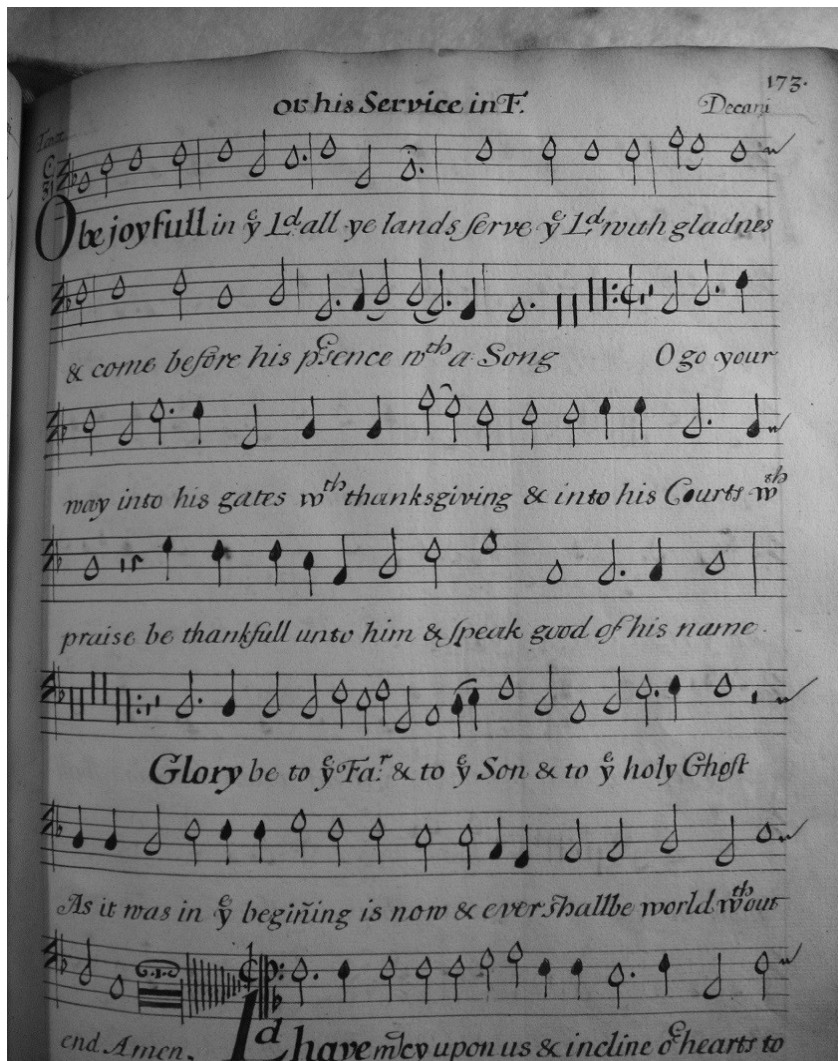 173.
or his Service in F. Decani
O be joyfull in yͤ Lᵈ all ye lands serve yͤ Lᵈ with gladnes
& come before his pſence wᵗʰ a Song O go your
way into his gates wᵗʰ thanksgiving & into his Courts wᵗʰ
praise be thankfull unto him & ſpeak good of his name.
Glory be to yͤ Faʳ. & to yͤ Son & to yͤ holy Ghoſt
As it was in yͤ begiñing is now & ever ſhallbe world wᵗʰout
end Amen. Lᵈ have m̃cy upon us & incline oͬ hearts to